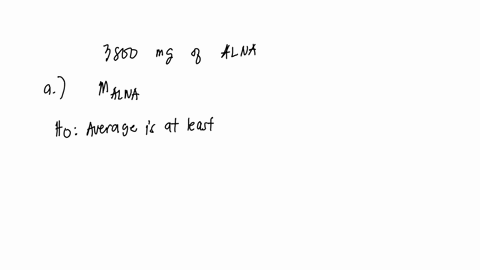 3800 mg of ALNA
a.) MALNA
Ho: Average is at least